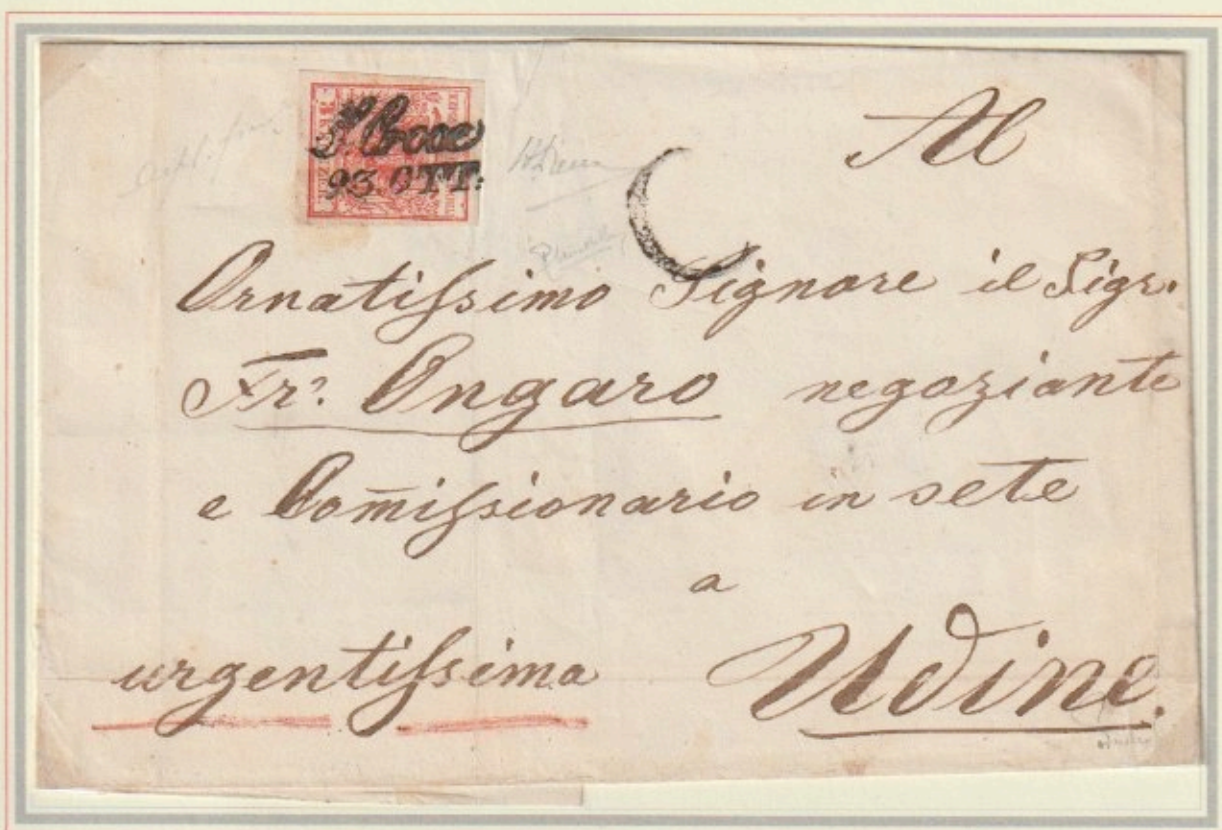 S.ta Croce
23. OTT:
Al
Ornatissimo Signore il Sigr.
Fr: Ongaro negoziante
e Com̄issionario in sete
a
urgentissima Udine.